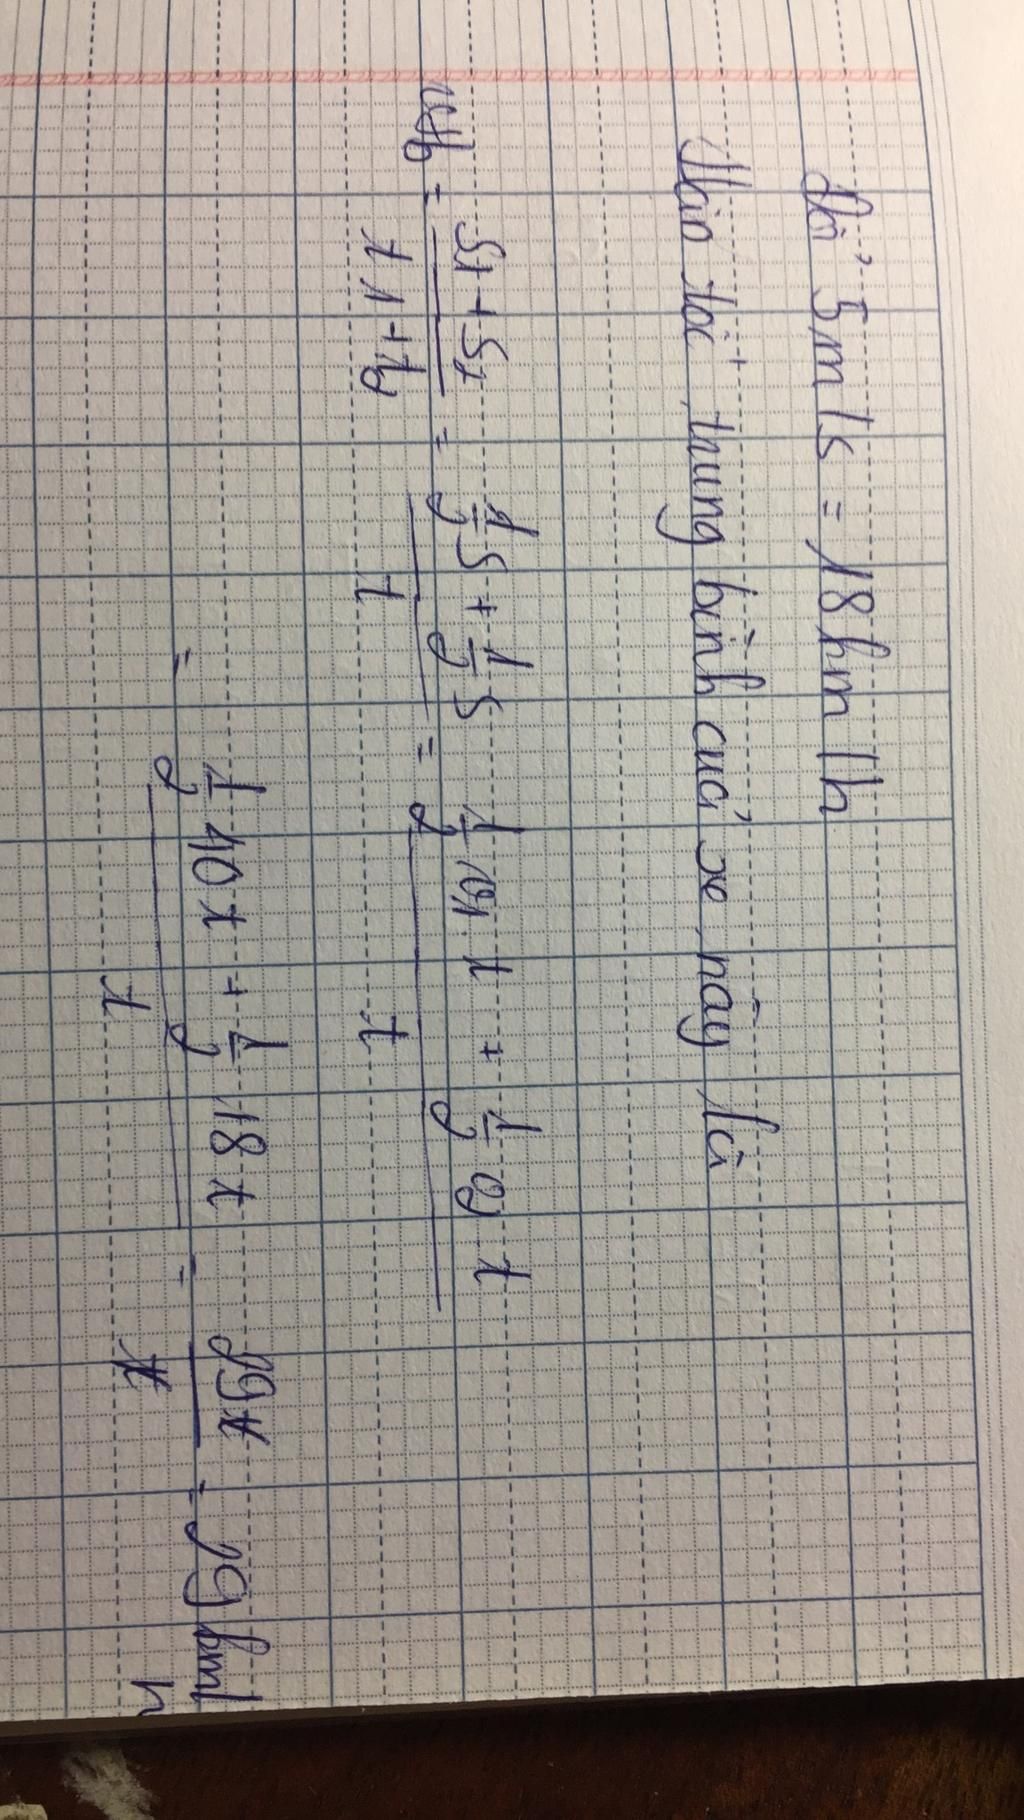 Đổi 5m/s = 18km/h
Vận tốc trung bình của xe này là
vtb = (S1 + S2)/(t1 + t2) = (1/2 S + 1/2 S)/t = (1/2 v1.t + 1/2 v2 t)/t
= (1/2 40t + 1/2 18t)/t = 29t/t = 29km/h